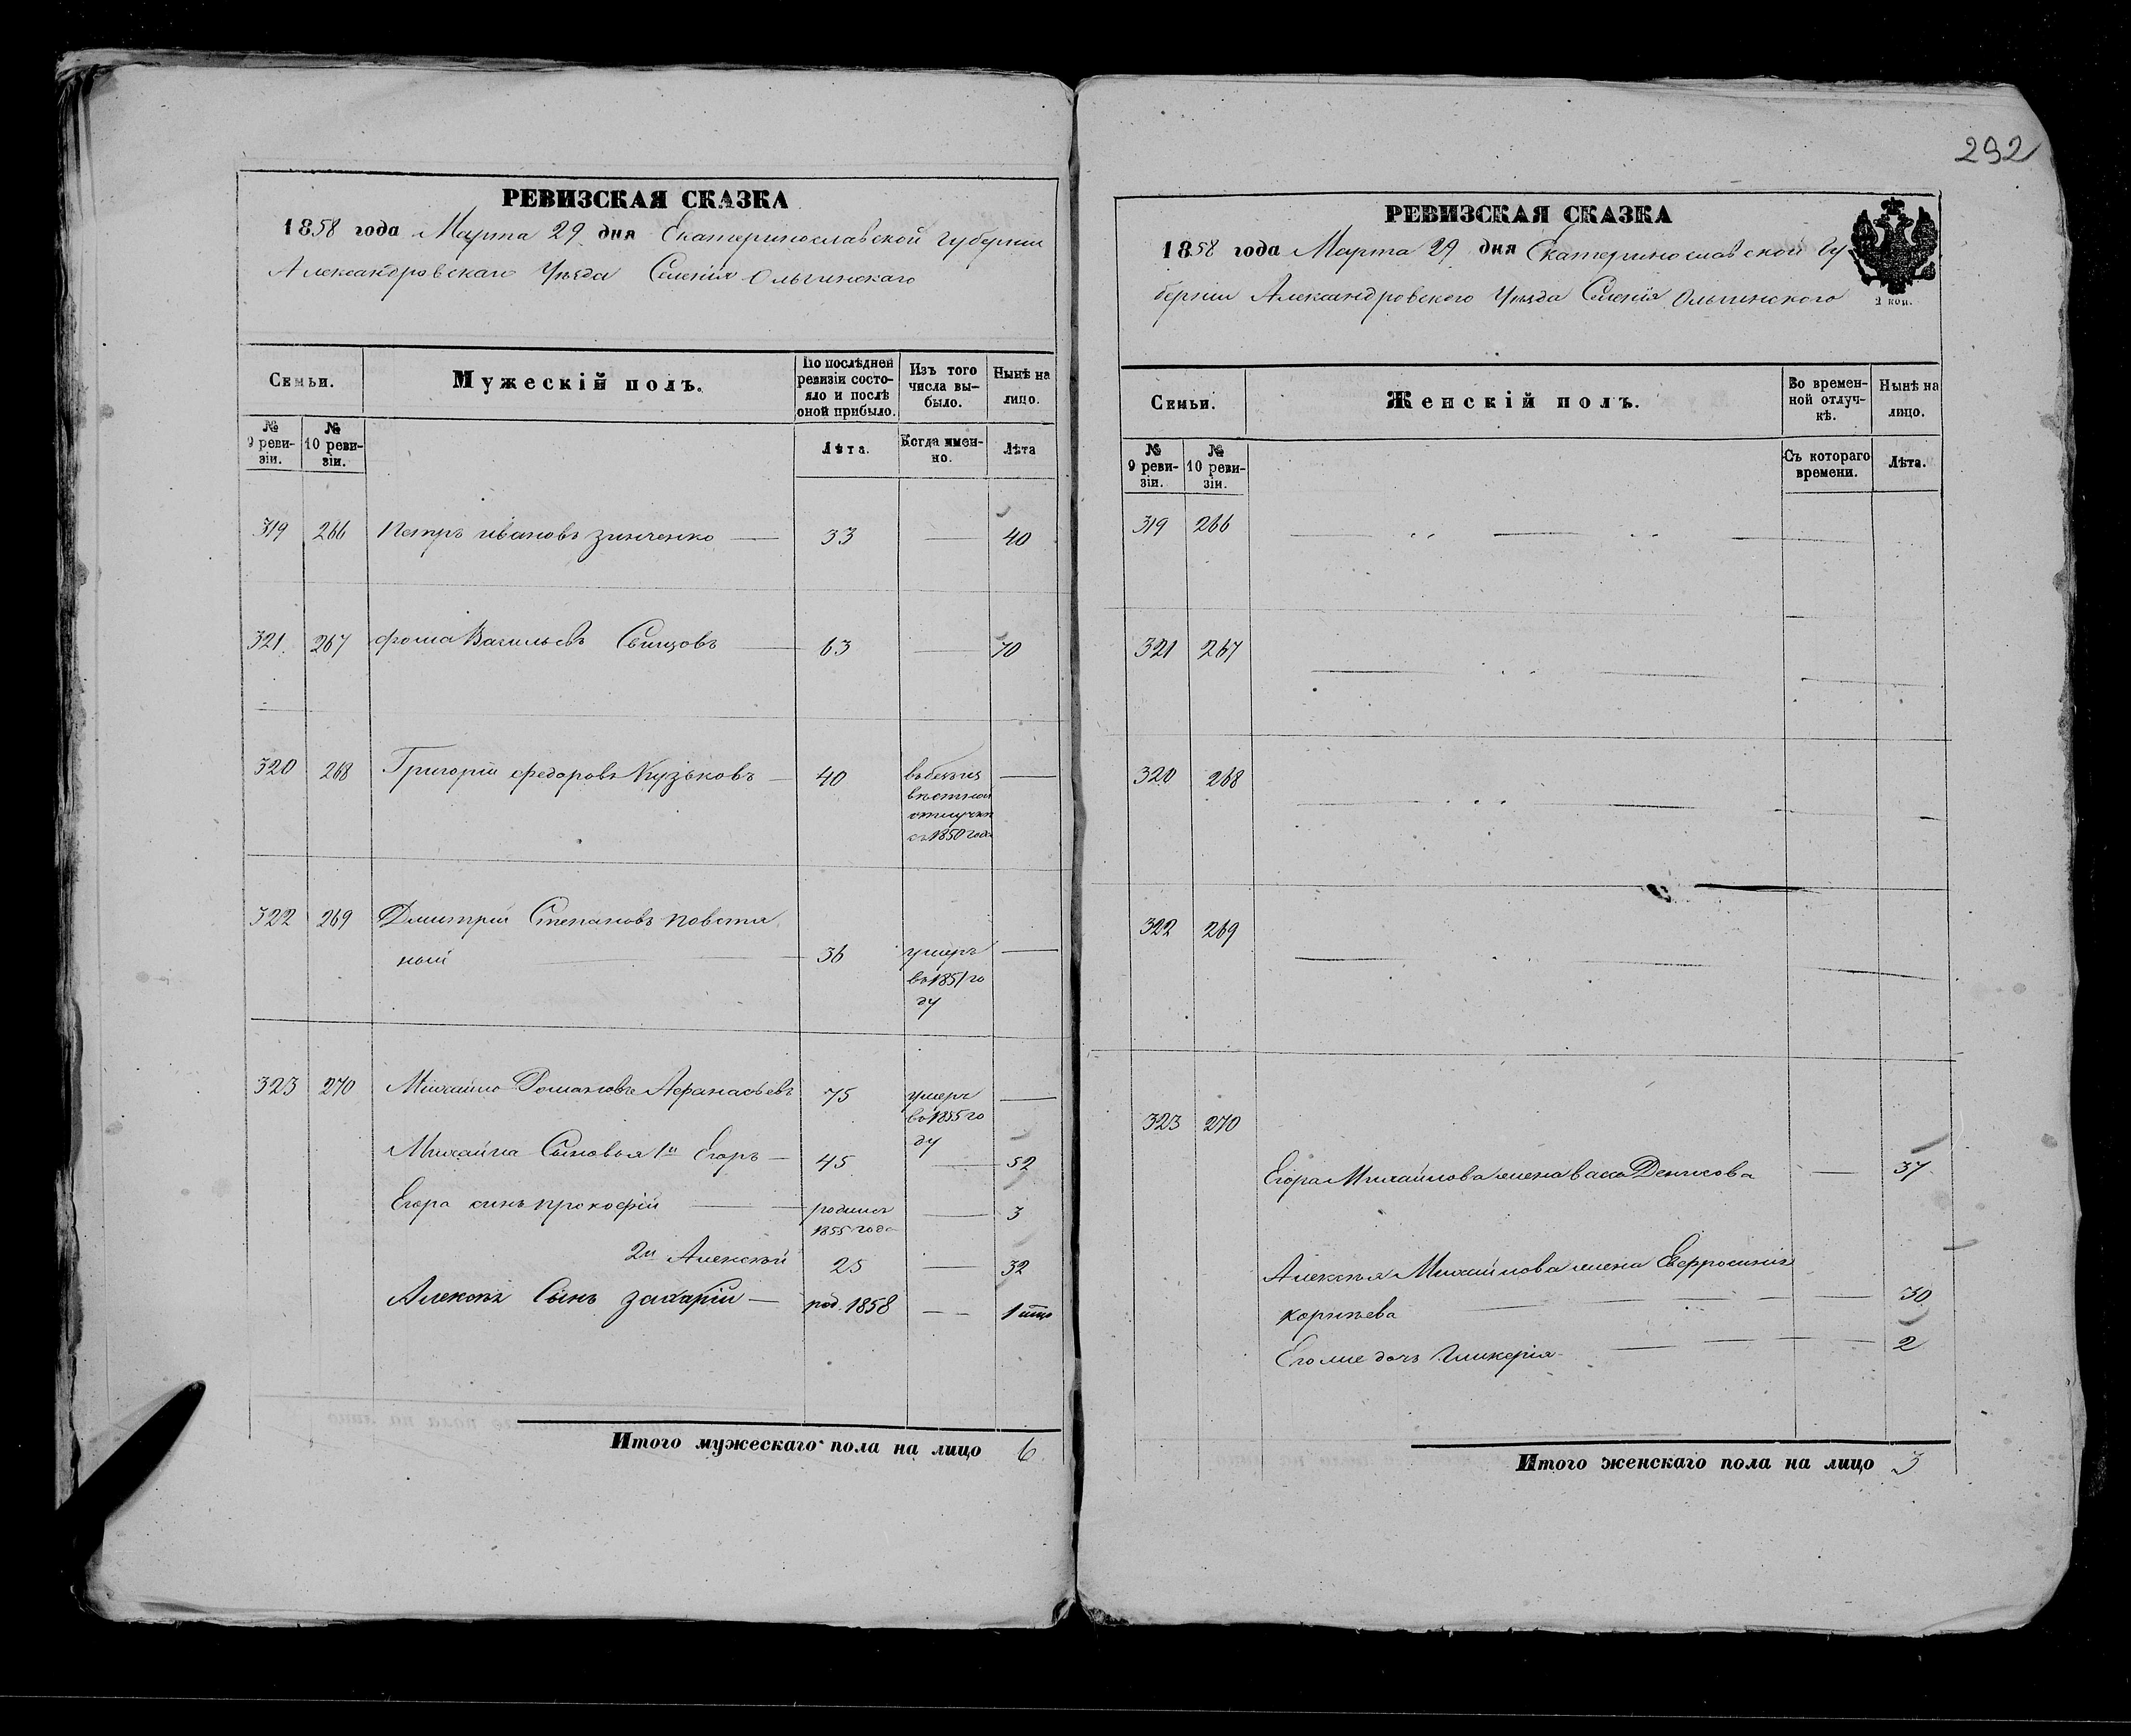 292
РЕВИЗСКАЯ СКАЗКА
1858 года Марта 29 дня Екатеринославской губернии
Александровскаго Уѣзда Селенія Ольгинскаго
Семьи.
Мужескій полъ.
По послѣдней ревизіи состояло и послѣ оной прибыло.
Изъ того числа выбыло.
Нынѣ на лицо.
№ 9 ревизіи.
№ 10 ревизіи.
Лѣта.
Когда именно.
Лѣта
319 266 Петръ ивановъ зинченко — 33 — 40
321. 267 фома Васильевъ — 63 — 70
320 268 Григорій федоровъ Кузьковъ — 40 —
отлучкѣ
съ 1850 года
322 269 Дмитрій Степановъ повстя
ный — 36 умеръ —
въ 1851 го
ду
323 270 Михайло Романовъ Афанасьевъ 75 умеръ —
въ 1855 го
ду
Михайла Сыновья 1й Егоръ — 45 — 52
Егора сынъ прокофій — родился — 3
1855 года
2й Алексѣй 25 — 32
Алексѣя Сынъ захарій — род. 1858 — —
Итого мужескаго пола на лицо 6
РЕВИЗСКАЯ СКАЗКА
1858 года Марта 29 дня Екатеринославской Гу
берніи Александровского Уѣзда Селенія Ольгинского
2 коп.
Семьи.
Женскій полъ.
Во временной отлучкѣ.
Нынѣ на лицо.
№ 9 ревизіи.
№ 10 ревизіи.
Съ котораго времени.
Лѣта.
319 266
321 267
320 268
322 269
323 270
Егора Михайлова жена Васа Денисова — 37
Алексѣя Михайлова жена Евфросинія
корнѣева — 30
Его же дочь Гликерія — 2
Итого женскаго пола на лицо 3